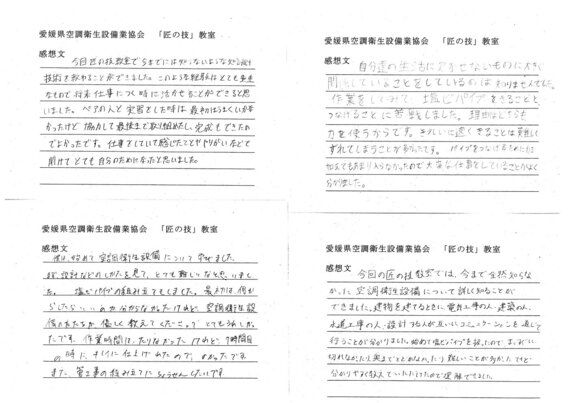 愛媛県空調衛生設備業協会 「匠の技」教室
感想文
今回匠の技教室で今までには
技術を教わることができました。このような経験はとても貴重
なもので将来仕事につく時に活かせることができると思
いました。ペアの人と実習とした時は最初はうまくいか
かったけど協力して最後まで取り組めたし、完成もできたの
でよかったです。仕事をしていて感じたことややりがいなどを
聞けてとても自分のためになったと思いました。
愛媛県空調衛生設備業協会 「匠の技」教室
感想文
自分達の生活に欠かせないものに大きく
関していることをしているのは知りませんでした。
作業をしてみて、塩ビパイプをきることと
つなげることに苦戦しました。理由はどちらも
力を使うからです。きれいに速くきることは難しく
ずれてしまうことがありました。パイプをつなげるためには
加えてもあまり入らなかったので大変な仕事をしていることがよく
分かりました。
愛媛県空調衛生設備業協会 「匠の技」教室
感想文
僕は、始めて空調衛生設備について学びました。
設計などのしかたを見て、とても難しいなと思いまし
た。塩ビパイプの組み立てもしました。最初は、何か
らしたらいいのか分からなかったけれど、空調衛生設
備の方たちが優しく教えてくださって、とてもうれしかっ
たです。作業時間は、たりなかったけれど、7時間目
の時に、キレイに仕上げれたので、よかったです。
また、管工事の組み立てにちょうせんしたいです。
愛媛県空調衛生設備業協会 「匠の技」教室
感想文
今回の匠の技教室では、今まで全然知らな
かった空調衛生設備について詳しく知ることが
できました。建物を建てるときに電気工事の人・建築の人、
水道工事の人・設計する人が互いにコミュニケーションを通して
行うことが分かりました。始めて塩ビパイプを使ったので、まっすぐに
切れなかったり奥までとどかなかったり難しいことが多かったけど、
分かりやすく教えていただけたので理解できました。